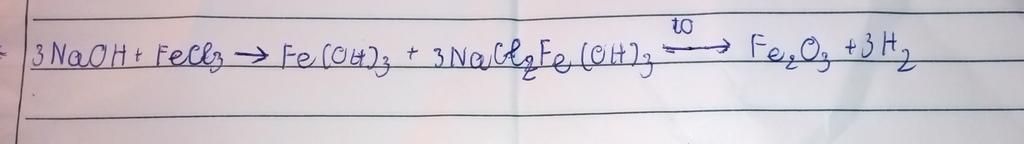 to
3NaOH + FeCl₃ → Fe(OH)₃ + 3NaCl₂Fe(OH)₃ → Fe₂O₃ + 3H₂